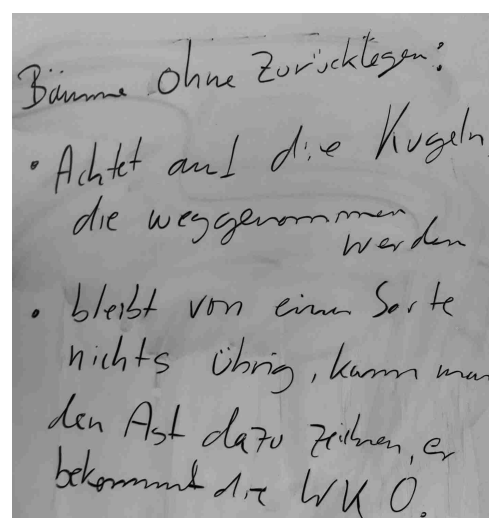 Bäume Ohne Zurücklegen:
• Achtet auf die Kugeln,
die weggenommen
werden
• bleibt von einer Sorte
nichts übrig, kann man
den Ast dazu zeichnen, er
bekommt die WK 0.